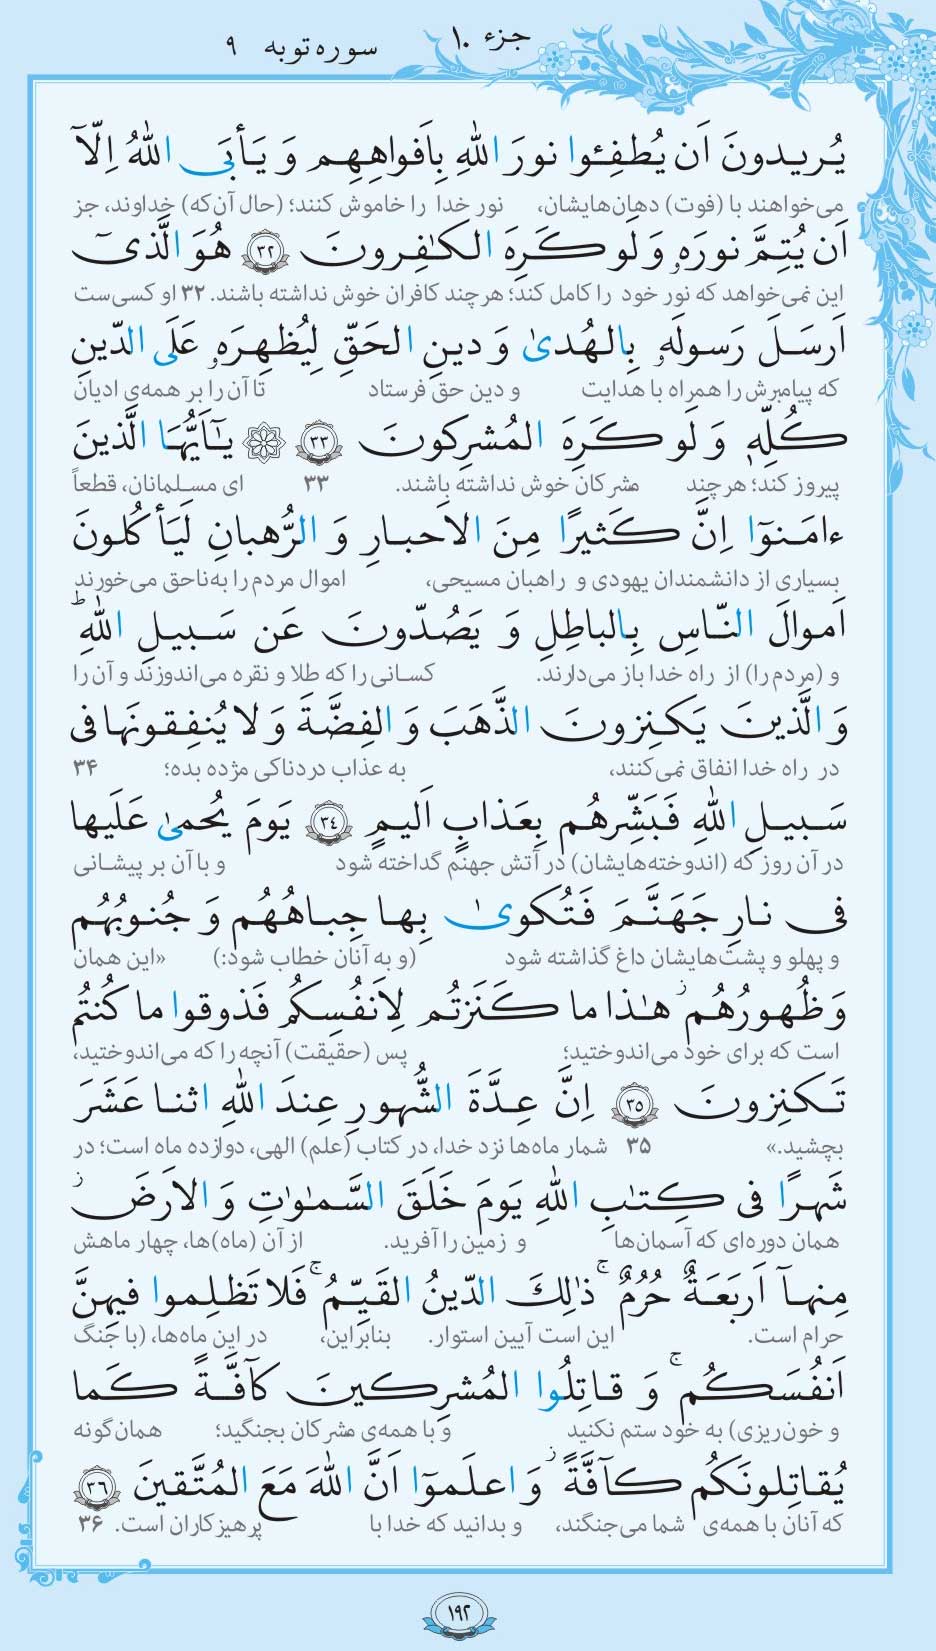 جزء ۱۰ سوره توبه ۹
يُريدونَ اَن يُطفِئوا نورَ اللهِ بِاَفواهِهِم وَ يَأبَى اللهُ اِلّآ
می‌خواهند با (فوت) دهان‌هایشان، نور خدا را خاموش کنند؛ (حال آن‌که) خداوند، جز
اَن يُتِمَّ نورَهٗ وَ لَو كَرِهَ الكٰفِرونَ ۳۲ هُوَ الَّذىٓ
این نمی‌خواهد که نور خود را کامل کند؛ هرچند کافران خوش نداشته باشند. ۳۲ او کسی‌ست
اَرسَلَ رَسولَهٗ بِالهُدىٰ وَ دينِ الحَقِّ لِيُظهِرَهٗ عَلَى الدّينِ
که پیامبرش را همراه با هدایت و دین حق فرستاد تا آن را بر همه‌ی ادیان
كُلِّهٖ وَ لَو كَرِهَ المُشرِكونَ ۳۳ يٰٓاَيُّهَا الَّذينَ
پیروز کند؛ هرچند مشرکان خوش نداشته باشند. ۳۳ ای مسلمانان، قطعاً
ءامَنوٓا اِنَّ كَثيرًا مِنَ الاَحبارِ وَ الرُّهبانِ لَيَأكُلونَ
بسیاری از دانشمندان یهودی و راهبان مسیحی، اموال مردم را به‌ناحق می‌خورند
اَموالَ النّاسِ بِالباطِلِ وَ يَصُدّونَ عَن سَبيلِ اللهِ ۗ
و (مردم را) از راه خدا باز می‌دارند. کسانی را که طلا و نقره می‌اندوزند و آن را
وَ الَّذينَ يَكنِزونَ الذَّهَبَ وَ الفِضَّةَ وَ لا يُنفِقونَها فى
در راه خدا انفاق نمی‌کنند، به عذاب دردناکی مژده بده؛ ۳۴
سَبيلِ اللهِ فَبَشِّرهُم بِعَذابٍ اَليمٍ ۳۴ يَومَ يُحمىٰ عَلَيها
در آن روز که (اندوخته‌هایشان) در آتش جهنم گداخته شود و با آن بر پیشانی
فى نارِ جَهَنَّمَ فَتُكوىٰ بِها جِباهُهُم وَ جُنوبُهُم
و پهلو و پشت‌هایشان داغ گذاشته شود (و به آنان خطاب شود:) «این همان
وَ ظُهورُهُم ۖ هٰذا ما كَنَزتُم لِاَنفُسِكُم فَذوقوا ما كُنتُم
است که برای خود می‌اندوختید؛ پس (حقیقت) آنچه را که می‌اندوختید،
تَكنِزونَ ۳۵ اِنَّ عِدَّةَ الشُّهورِ عِندَ اللهِ اثنا عَشَرَ
بچشید.» ۳۵ شمار ماه‌ها نزد خدا، در کتاب (علم) الهی، دوازده ماه است؛ در
شَهرًا فى كِتٰبِ اللهِ يَومَ خَلَقَ السَّمٰوٰتِ وَ الاَرضَ ۖ
همان دوره‌ای که آسمان‌ها و زمین را آفرید. از آن (ماه)ها، چهار ماهش
مِنهآ اَربَعَةٌ حُرُمٌ ۚ ذٰلِكَ الدّينُ القَيِّمُ ۚ فَلا تَظلِموا فيهِنَّ
حرام است. این است آیین استوار. بنابراین، در این ماه‌ها، (با جنگ
اَنفُسَكُم ۚ وَ قاتِلُوا المُشرِكينَ كآفَّةً كَما
و خون‌ریزی) به خود ستم نکنید و با همه‌ی مشرکان بجنگید؛ همان‌گونه
يُقاتِلونَكُم كآفَّةً ۖ وَ اعلَموٓا اَنَّ اللهَ مَعَ المُتَّقينَ ۳۶
که آنان با همه‌ی شما می‌جنگند، و بدانید که خدا با پرهیزکاران است. ۳۶
۱۹۲